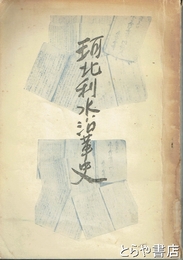 河北利水沿革史
とらや書店